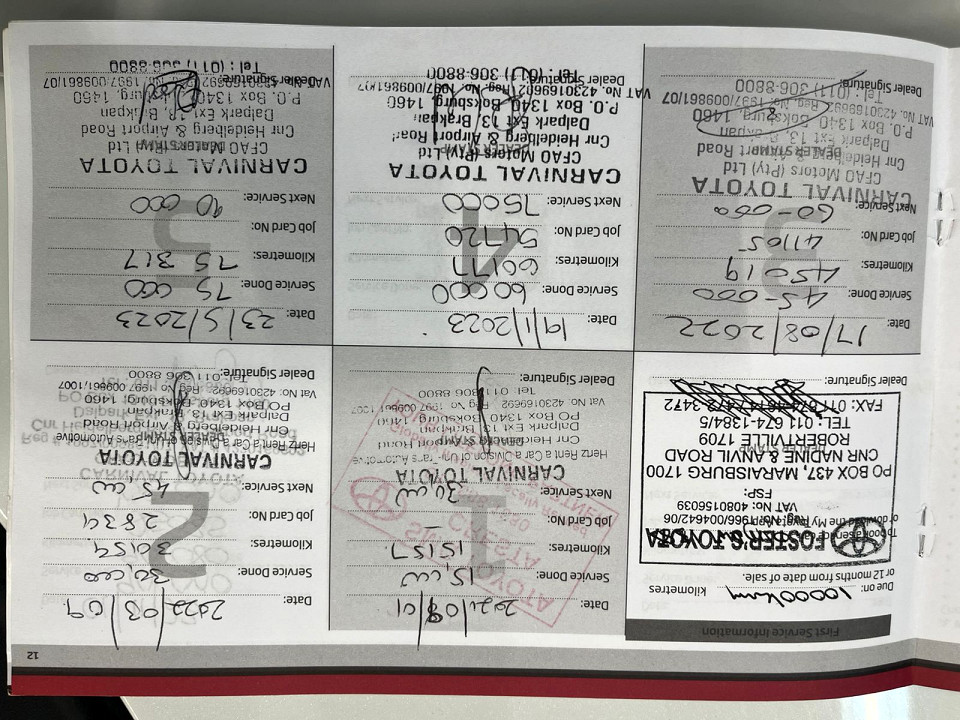 12
First Service Information
Due on: 10000km kilometres
or 12 months from date of sale.
FOSTER'S TOYOTA
Reg. No: 1966/004642/06
VAT No: 4080156039
FSP:
PO BOX 437, MARAISBURG 1700
CNR NADINE & ANVIL ROAD
ROBERTVILLE 1709
TEL: 011 674-1364/5
FAX: 011 674-1674/472-3472
Dealer Signature:
1
Date: 2021/08/01
Service Done: 15,000
Kilometres: 15157
Job Card No: —
Next Service: 30,000
CARNIVAL TOYOTA
Hertz Rent a Car a Division of Unitrans Automotive
Cnr Heidelberg & Airport Road
Dalpark Ext 13 Brakpan
PO Box 1340 Boksburg 1460
Vat No: 4230169692 Reg No 1997 009861 1007
Tel: 011 306 8800
Dealer Signature:
2
Date: 2022/03/09
Service Done: 30,000
Kilometres: 30159
Job Card No: 28391
Next Service: 45,000
CARNIVAL TOYOTA
Hertz Rent a Car a Division of Unitrans Automotive
Cnr Heidelberg & Airport Road
Dalpark Ext 13 Brakpan
PO Box 1340 Boksburg 1460
Vat No: 4230169692 Reg No 1997 009861 1007
Tel: 011 306 8800
Dealer Signature:
3
Date: 17/08/2022
Service Done: 45-000
Kilometres: 45019
Job Card No: 41105
Next Service: 60-000
CARNIVAL TOYOTA
CFAO Motors (Pty) Ltd
Cnr Heidelberg & Airport Road
DEALER STAMP
Dalpark Ext 13, Brakpan
P.O. Box 1340 Boksburg 1460
VAT No. 4230169692 Reg. No. 1997/009861/07
Tel: (011) 306-8800
Dealer Signature:
4
Date: 19/1/2023
Service Done: 60000
Kilometres: 60177
Job Card No: 54720
Next Service: 75000
CARNIVAL TOYOTA
CFAO Motors (Pty) Ltd
Cnr Heidelberg & Airport Road
Dalpark Ext 13, Brakpan
P.O. Box 1340 Boksburg, 1460
VAT No. 4230169692 Reg. No. 1997/009861/07
Dealer Signature:
Tel: (011) 306-8800
5
Date: 23/5/2023
Service Done: 75 000
Kilometres: 75 317
Job Card No:
Next Service: 90 000
CARNIVAL TOYOTA
CFAO Motors (Pty) Ltd
Cnr Heidelberg & Airport Road
Dalpark Ext 13, Brakpan
P.O. Box 1340 Boksburg, 1460
VAT No. 4230169692 Reg. No. 1997/009861/07
Dealer Signature:
Tel: (011) 306-8800